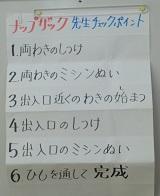 ナップザック 先生チェックポイント
1.両わきのしつけ
2.両わきのミシンぬい
3 出入口近くのわきの始まつ
4 出入口のしつけ
5 出入口のミシンぬい
6 ひもを通して 完成